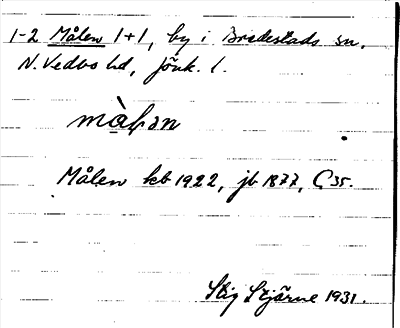 1-2 Målen 1+1, by i Bredestads sn,
N. Vedbo hd, Jönk. l.
Målen kb 1922, jb 1877, C 35.
Stig Stjärne 1931.